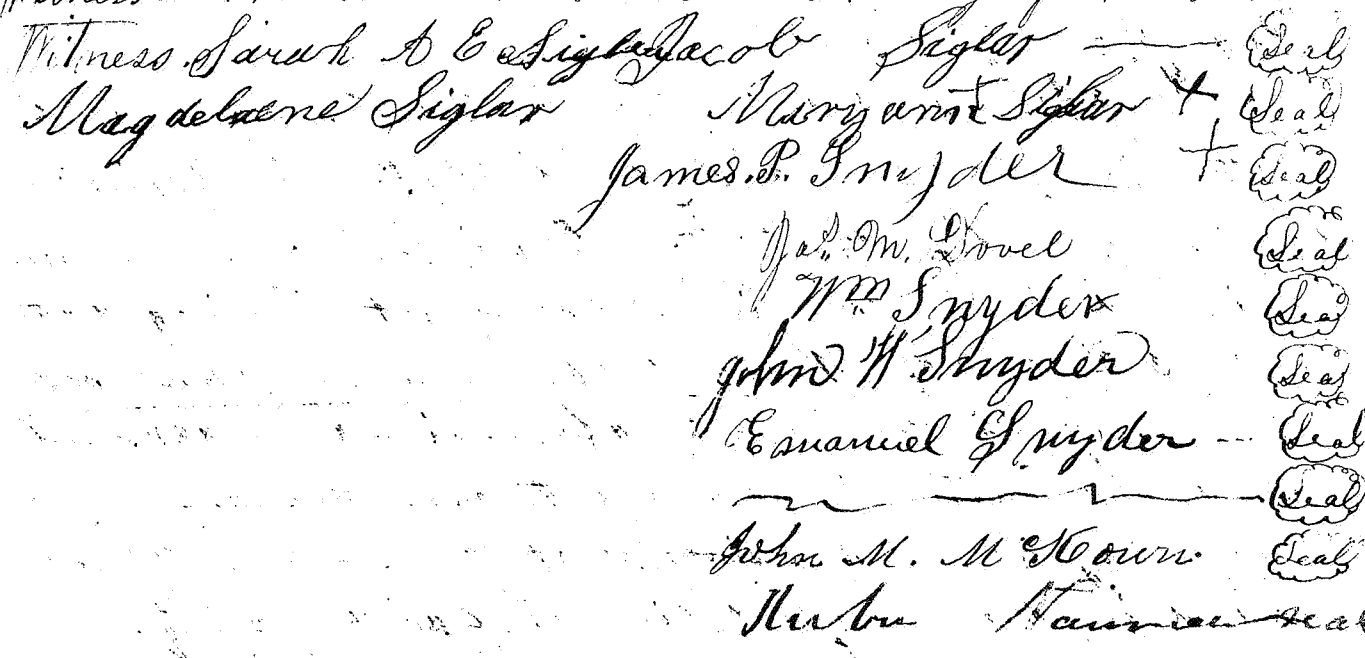 Witness. Sarah A E Siglar Jacob Siglar Seal
Magdelaene Siglar Maryann + Siglar + Seal
James. P. Snyder + Seal
Jas. M. Dovel Seal
Wm Snyder Seal
John W Snyder Seal
Emanuel Snyder Seal
Seal
John M. McKown Seal
Seal